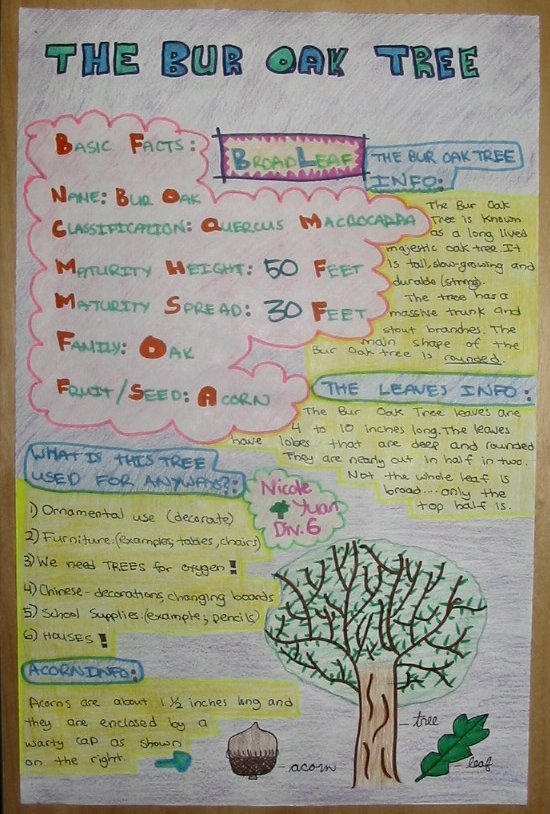 THE BUR OAK TREE
BASIC FACTS:
NAME: BUR OAK
CLASSIFICATION: QUERCUS MACROCARPA
MATURITY HEIGHT: 50 FEET
MATURITY SPREAD: 30 FEET
FAMILY: OAK
FRUIT/SEED: ACORN
BROADLEAF
THE BUR OAK TREE
INFO:
The Bur Oak
Tree is known
as a long lived
majestic oak tree. It
is tall, slow-growing and
durable (strong).
The tree has a
massive trunk and
stout branches. The
main shape of the
Bur Oak tree is rounded.
THE LEAVES INFO:
The Bur Oak Tree leaves are
4 to 10 inches long. The leaves
have lobes that are deep and rounded
They are nearly cut in half in two.
Not the whole leaf is
broad... only the
top half is.
WHAT IS THIS TREE
USED FOR ANYWAYS?:
1) Ornamental use (decorate)
2) Furniture: (examples; tables, chairs)
3) We need TREES for oxygen!
4) Chinese- decorations, changing boards
5) School Supplies: (example; pencils)
6) HOUSES!
Nicole
Yuan
Div. 6
ACORN INFO:
Acorns are about 1 1/2 inches long and
they are enclosed by a
warty cap as shown
on the right.
acorn
tree
leaf